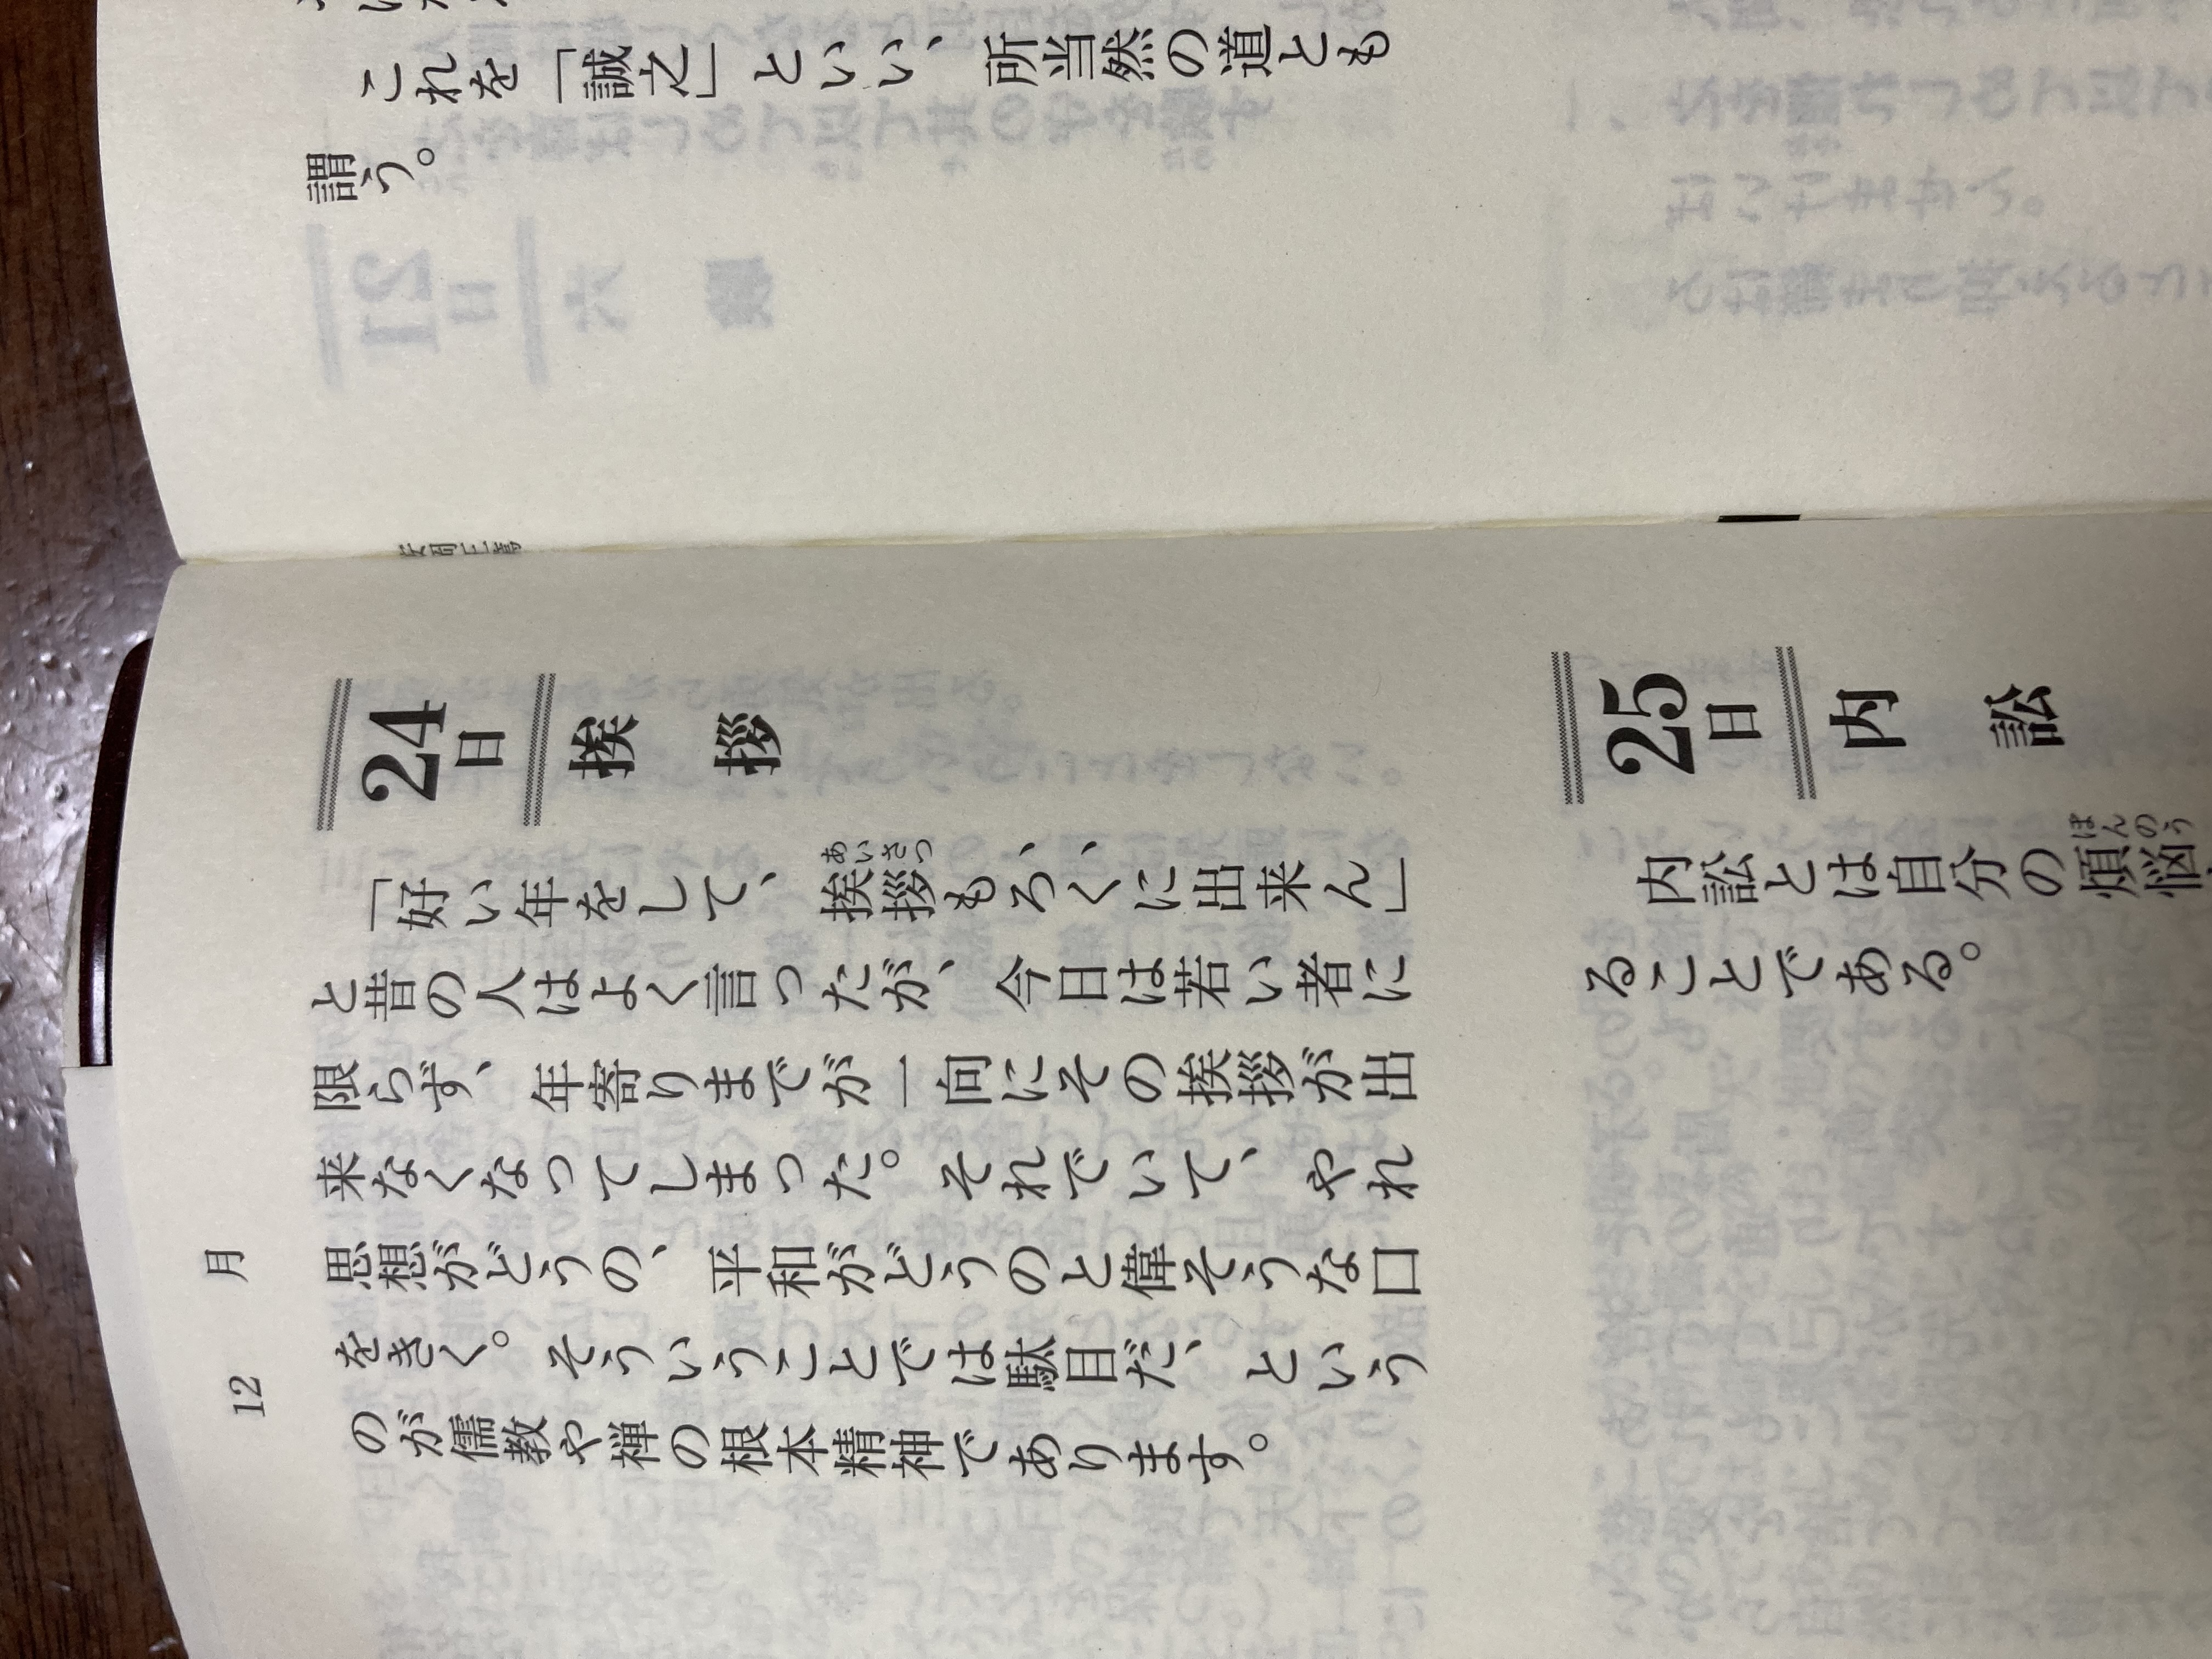 これを「誠之」といい、所当然の道とも
謂う。
24日
挨拶
「好い年をして、挨拶もろくに出来ん」
あいさつ
と昔の人はよく言ったが、今日は若い者に
限らず、年寄りまでが一向にその挨拶が出
来なくなってしまった。それでいて、やれ
思想がどうの、平和がどうのと偉そうな口
をきく。そういうことでは駄目だ、という
のが儒教や禅の根本精神であります。
12月
25日
内訟
内訟とは自分の煩悩
ぼんのう
ることである。